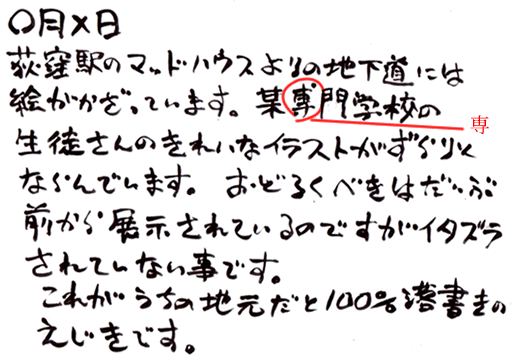 〇月×日
荻窪駅のマッドハウスよりの地下道には
絵がかざっています。某専門学校の
専
生徒さんのきれいなイラストがずらりと
ならんでいます。おどろくべきはだいぶ
前から展示されているのですがイタズラ
されていない事です。
これがうちの地元だと100%落書きの
えじきです。